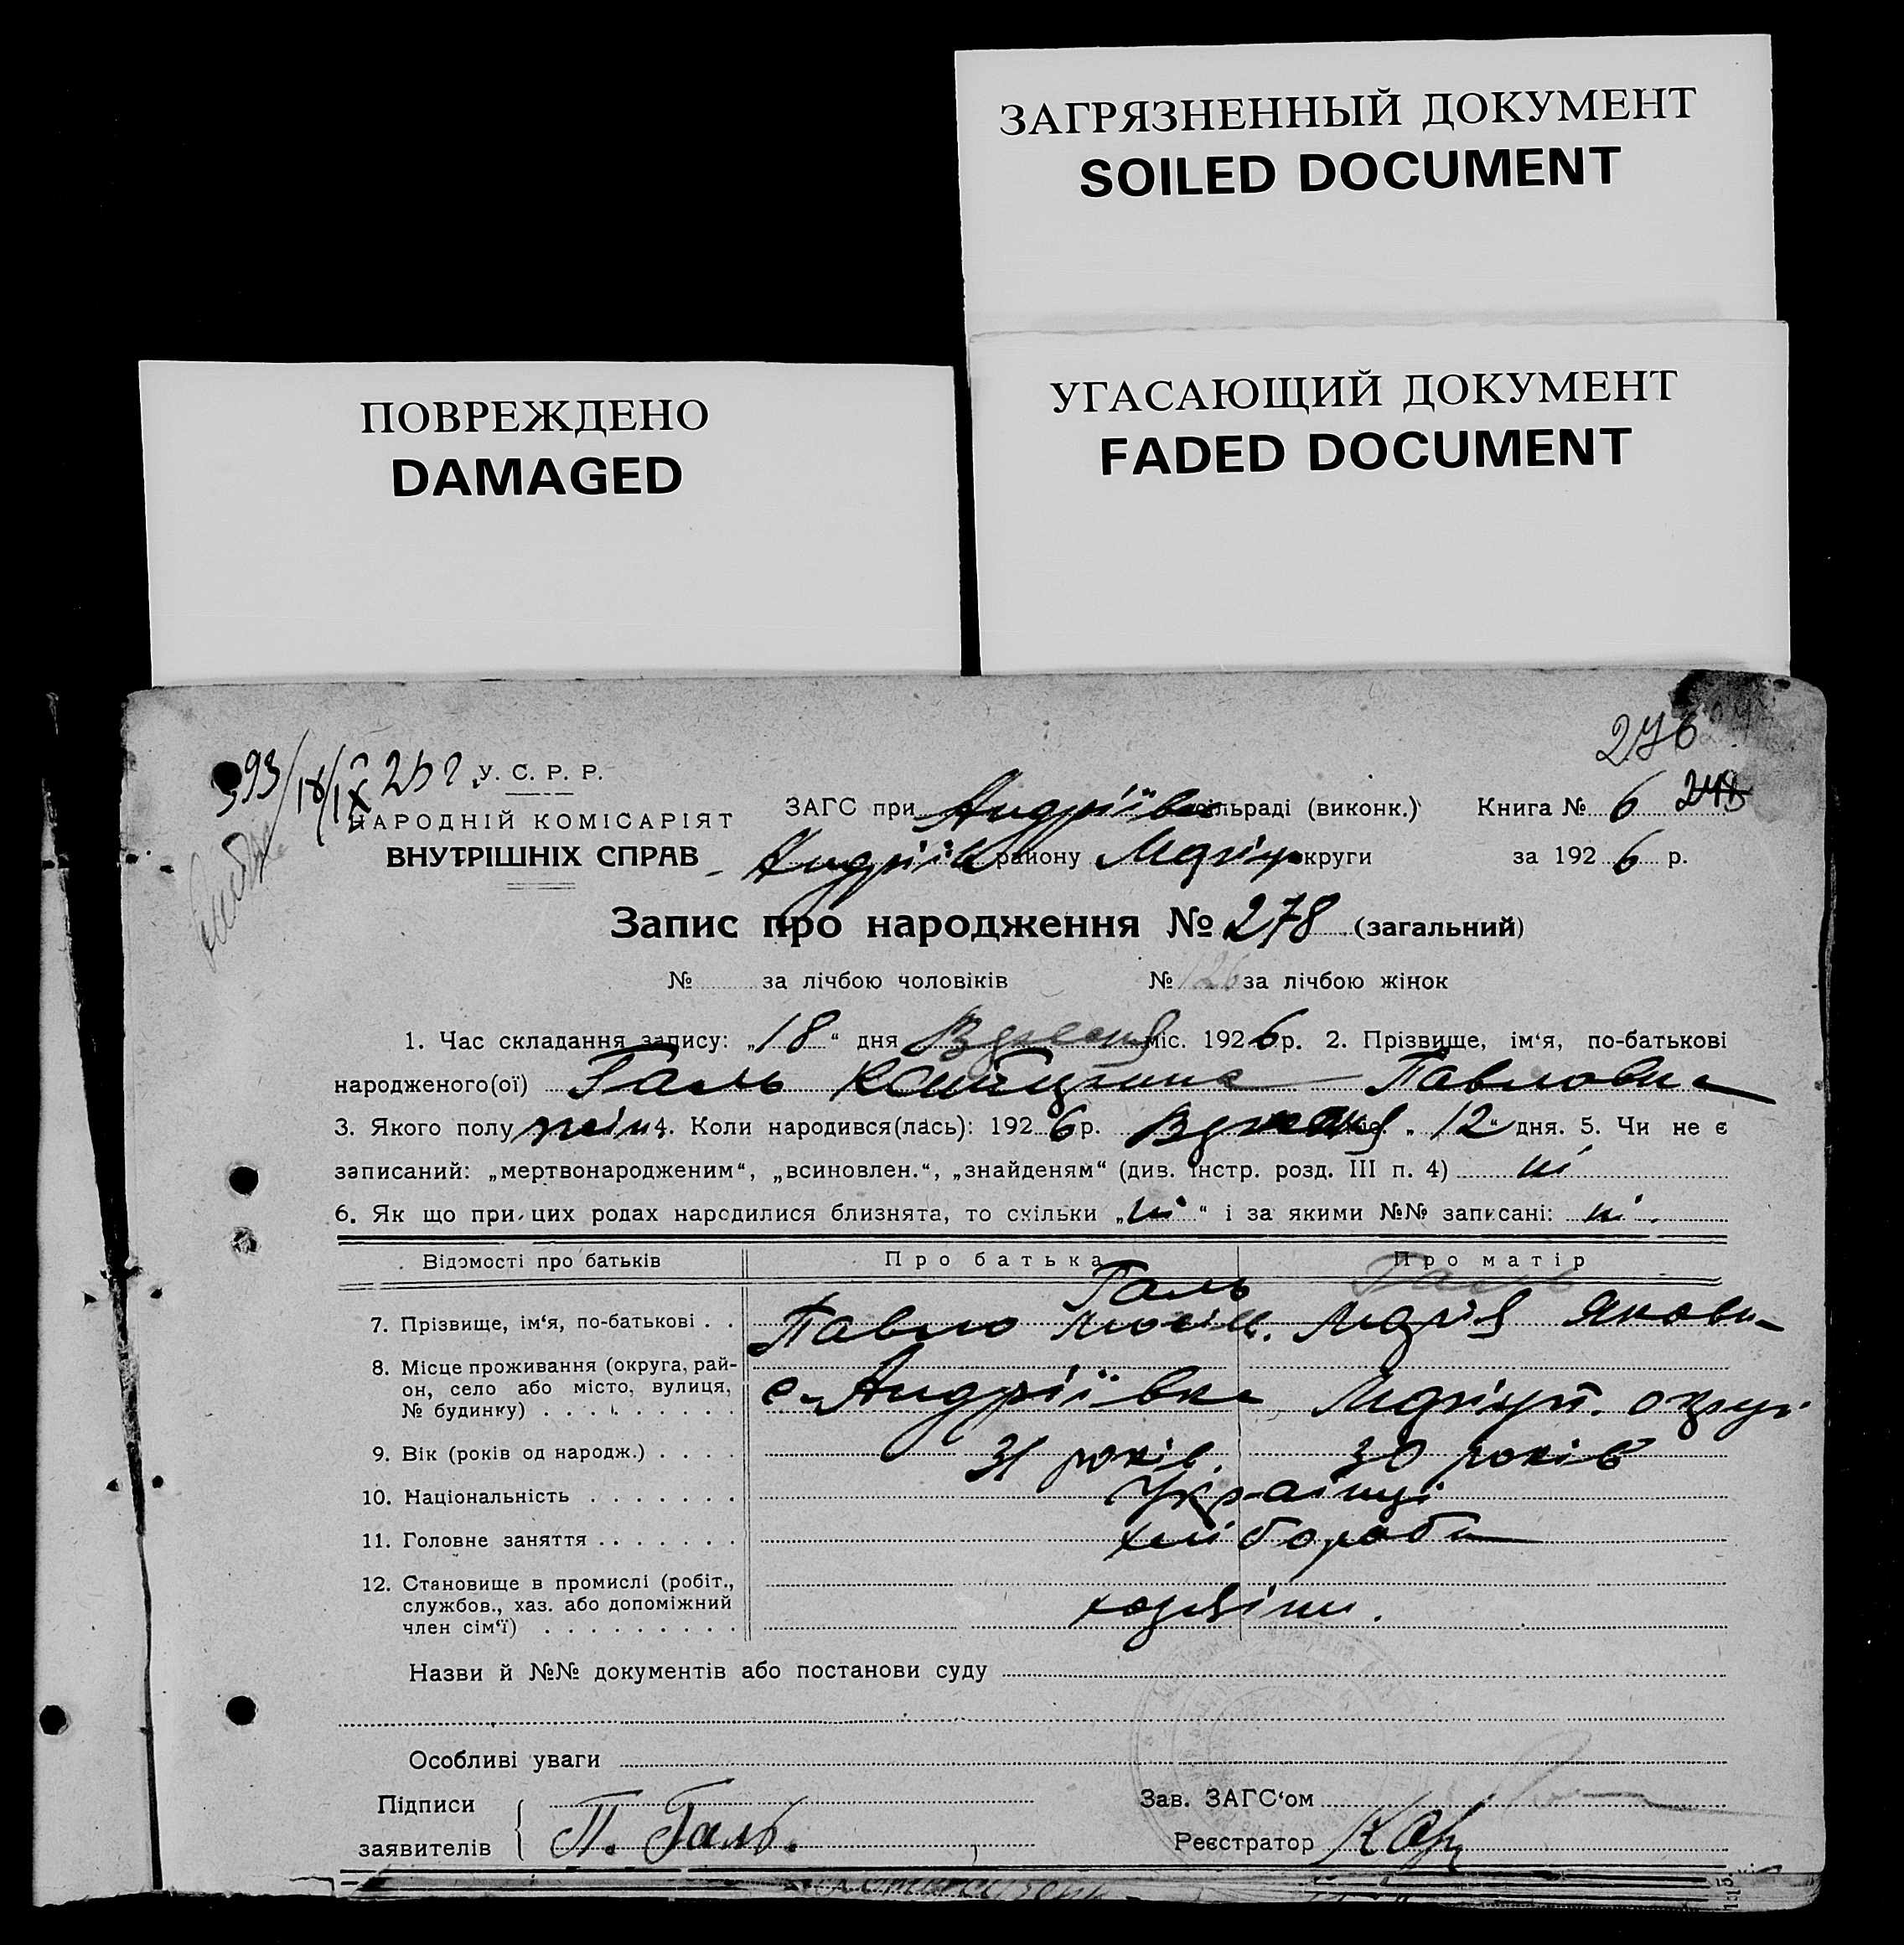 ЗАГРЯЗНЕННЫЙ ДОКУМЕНТ
SOILED DOCUMENT
ПОВРЕЖДЕНО
DAMAGED
УГАСАЮЩИЙ ДОКУМЕНТ
FADED DOCUMENT
276
У. С. Р. Р.
НАРОДНІЙ КОМІСАРІЯТ
ВНУТРІШНІХ СПРАВ
ЗАГС при Андріївс сільраді (виконк.) Книга № 6
Андріїв району Маріуп округи за 1926 р.
Запис про народження № 278 (загальний)
№ за лічбою чоловіків № 126 за лічбою жінок
1. Час складання запису: „18“ дня Вересня міс. 1926 р. 2. Прізвище, ім‘я, по-батькові
народженого(ої) Галь Павловна
3. Якого полу жіин 4. Коли народився(лась): 1926 р. Вересня міс. „12“ дня. 5. Чи не є
записаний: „мертвонародженим“, „всиновлен.“, „знайденям“ (див. інстр. розд. III п. 4) ні
6. Як що при цих родах народилися близнята, то скільки „ні“ і за якими №№ записані: ні.
Відомості про батьків Про батька Про матір
7. Прізвище, ім‘я, по-батькові . . Галь Павло Галь Марія Якови
8. Місце проживання (округа, рай-
он, село або місто, вулиця,
№ будинку) . . . . . . . . . с. Андріївка Маріуп. округі
9. Вік (років од народж.) . . . . 31 років. 30 років
10. Національність . . . . . . . Українці
11. Головне заняття . . . . . . . хлібороби
12. Становище в промислі (робіт.,
службов., хаз. або допоміжний
член сім‘ї) . . . . . . . . . хазяіни.
Назви й №№ документів або постанови суду
Особливі уваги
Підписи
заявителів П. Галь.
Зав. ЗАГС‘ом
Реєстратор